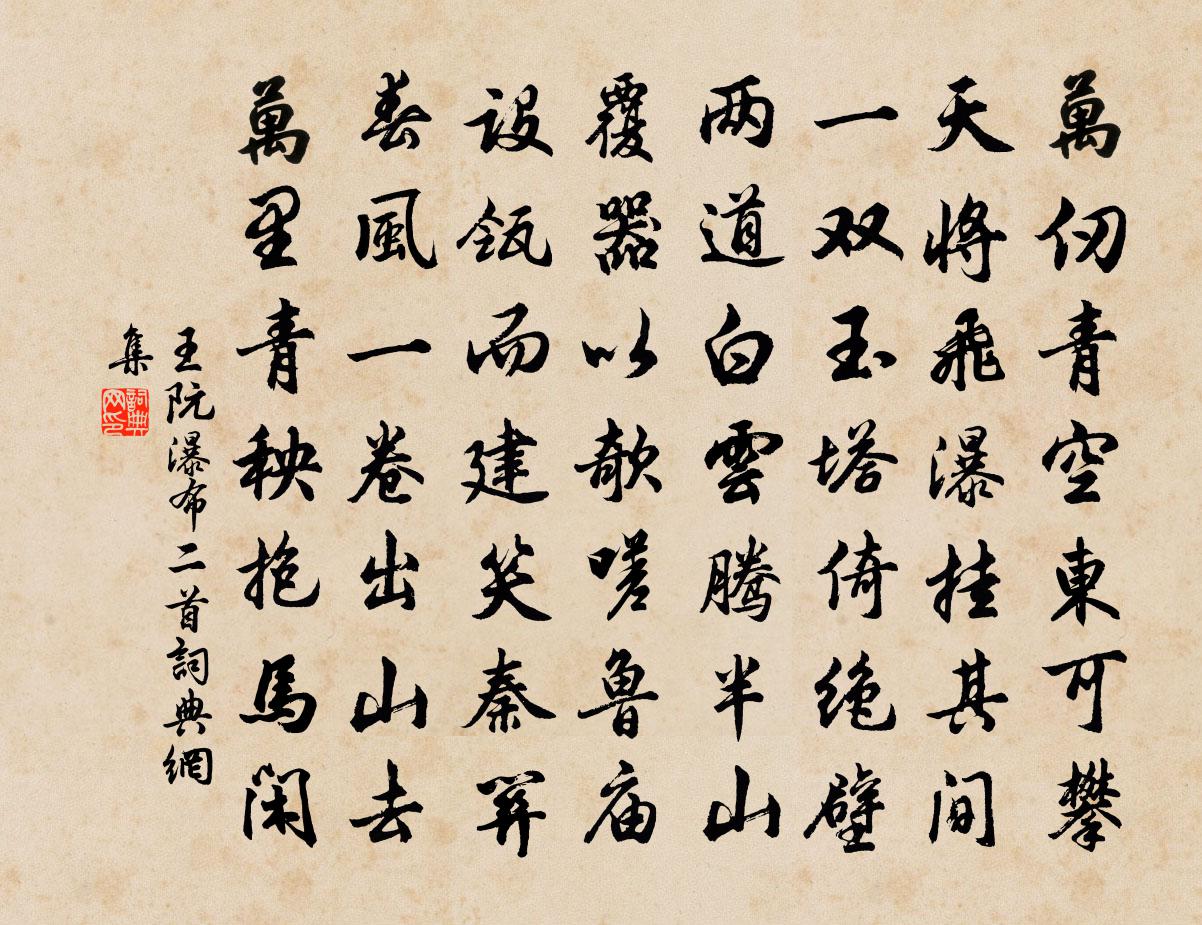 萬仞青空東可攀
天將飛瀑挂其間
一双玉塔倚絶壁
两道白雲騰半山
覆器以欹嗟魯庙
設瓴而建笑秦關
春風一卷出山去
萬里青秧抱馬閑
王阮瀑布二首詞典網
集
詞典网印